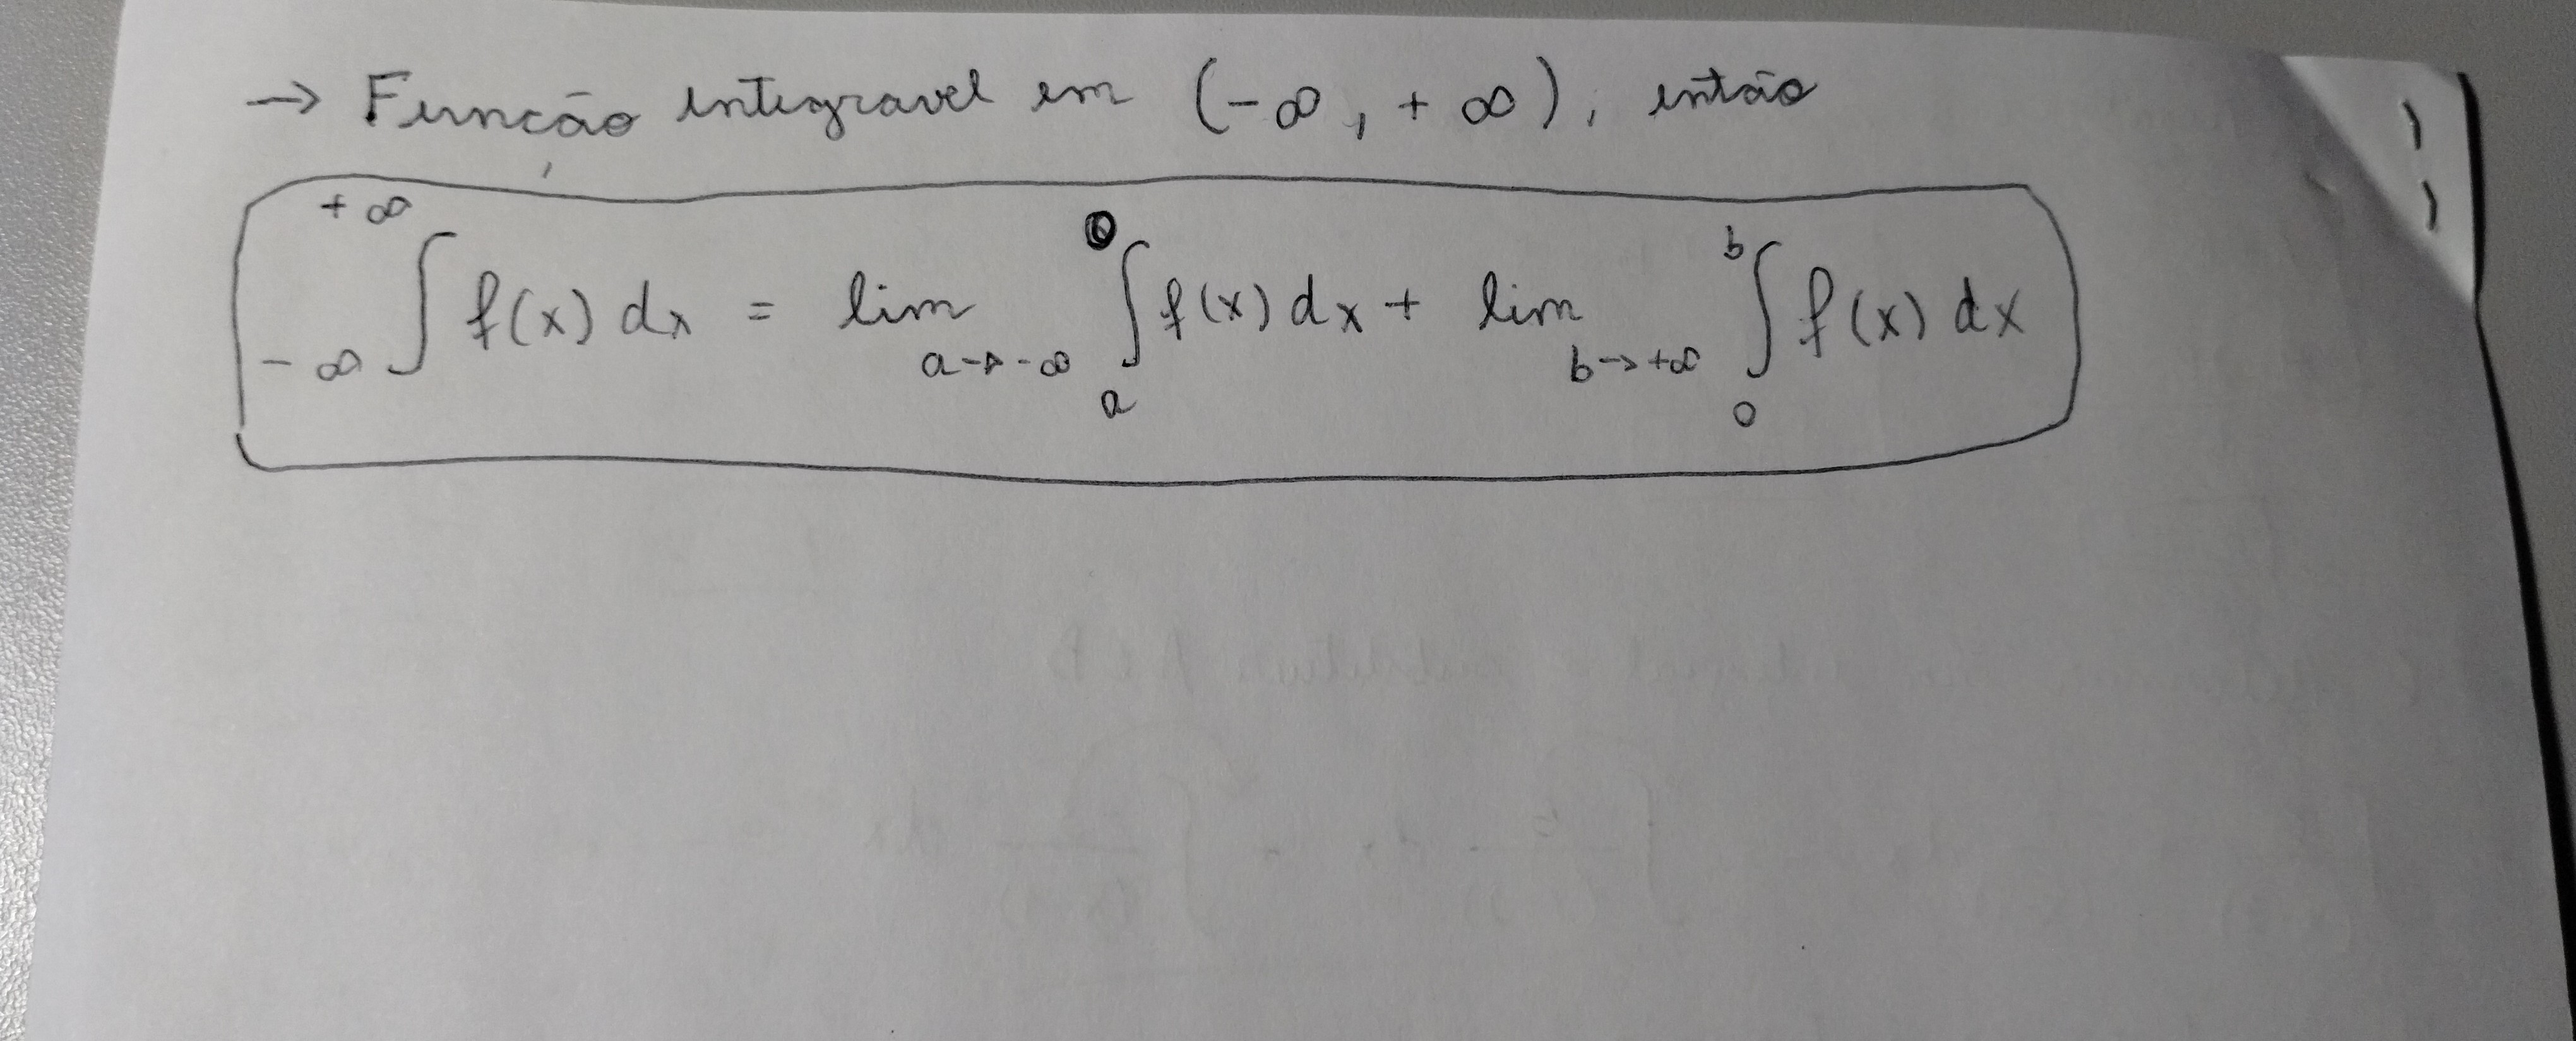 → Função integravel em (-∞, +∞), então
∫_{-∞}^{+∞} f(x) dx = lim_{a→-∞} ∫_a^0 f(x) dx + lim_{b→+∞} ∫_0^b f(x) dx